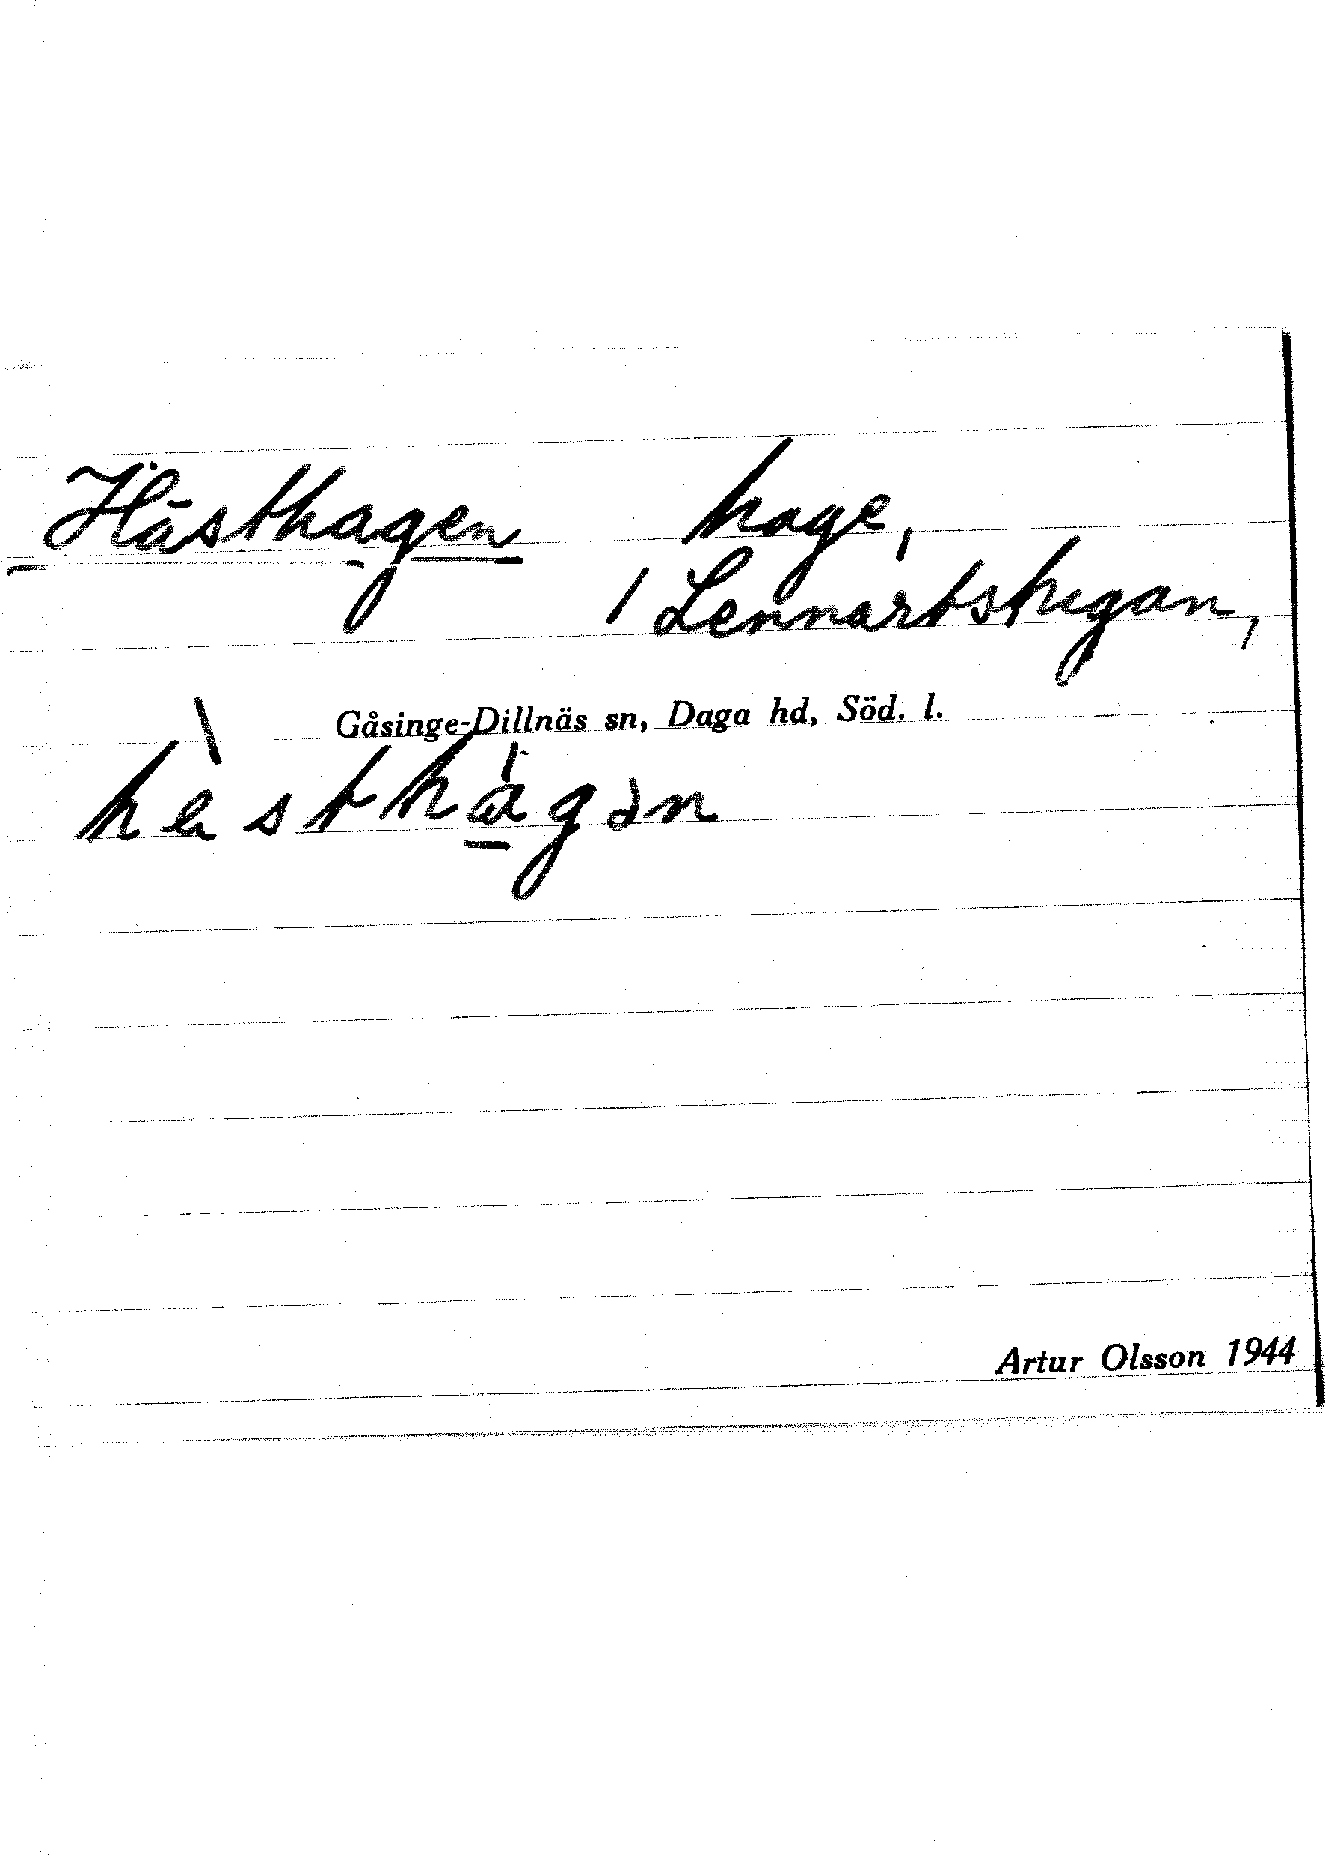 Hästhagen hage,
/ Lennartstugan,
Gåsinge-Dillnäs sn, Daga hd, Söd. l.
hàsthágən
Artur Olsson 1944